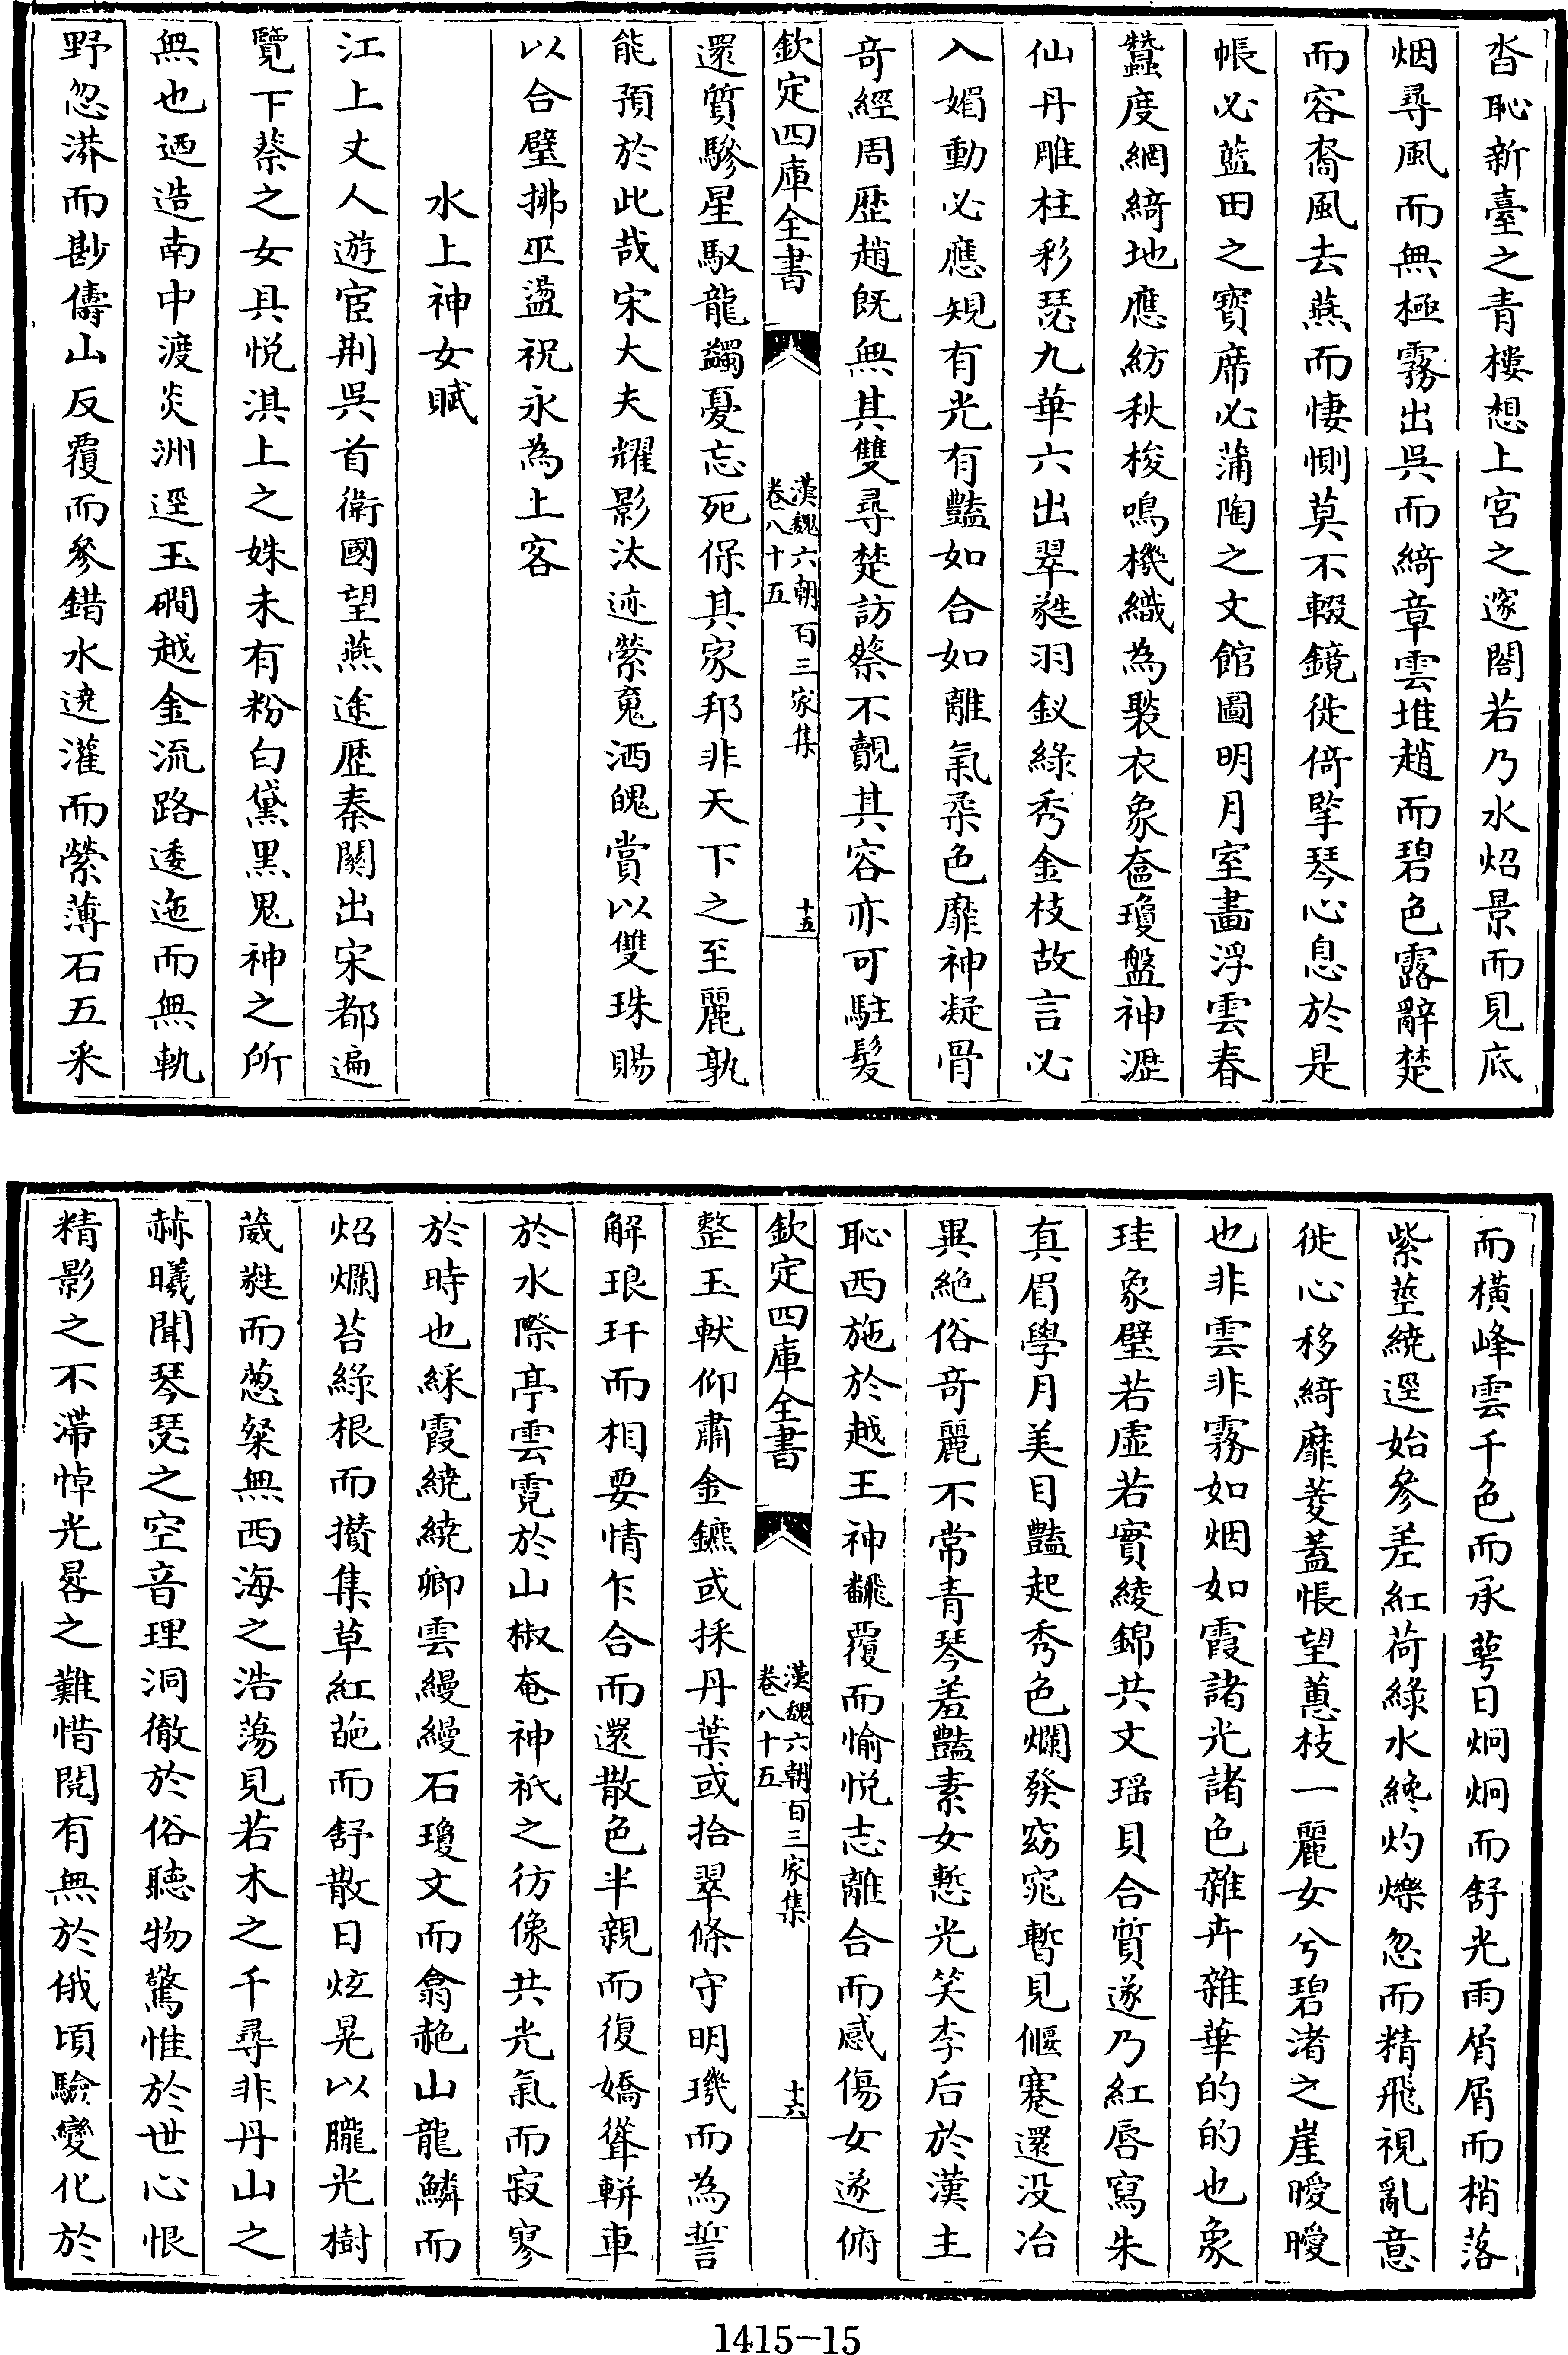 沓恥新臺之青樓想上宮之邃閤若乃水炤景而見底
烟尋風而無極霧出吳而綺章雲堆趙而碧色露辭楚
而容裔風去燕而悽惻莫不輟鏡徙倚擥琴心息於是
帳必藍田之寳席必蒲陶之文館圖明月室畫浮雲春
蠶度網綺地應紡秋梭鳴機織為褧衣象奩瓊盤神瀝
仙丹雕柱彩瑟九華六出翠㽔羽釵綠秀金枝故言必
入媚動必應䂓有光有豔如合如離氣柔色靡神凝骨
奇經周歷趙既無其雙尋楚訪蔡不覿其容亦可駐髮
欽定四庫全書
漢魏六朝百三家集
卷八十五
十五
還質驂星馭龍蠲憂忘死保其家邦非天下之至麗孰
能預於此哉宋大夫耀影汰迹縈䰟洒魄賞以雙珠賜
以合璧拂巫盪祝永為上客
水上神女賦
江上丈人遊宦荆吳首衛國望燕途歷秦關出宋都遍
覽下蔡之女具悦淇上之姝未有粉白黛黑鬼神之所
無也迺造南中渡炎洲逕玉磵越金流路逶迤而無軌
野忽漭而尠儔山反覆而參錯水遶灌而縈薄石五采
而橫峰雲千色而承萼日炯炯而舒光雨屑屑而梢落
紫莖繞逕始參差紅荷綠水纔灼爍忽而精飛視亂意
徙心移綺靡菱蓋悵望蕙枝一麗女兮碧渚之崖曖曖
也非雲非霧如烟如霞諸光諸色雜卉雜華的的也象
珪象璧若虛若實綾錦共文瑶貝合質遂乃紅唇寫朱
真眉學月美目豔起秀色爛發窈窕暫見偃蹇還没冶
異絶俗奇麗不常青琴羞豔素女慙光笑李后於漢主
恥西施於越王神翻覆而愉悦志離合而感傷女遂俯
欽定四庫全書
漢魏六朝百三家集
卷八十五
十六
整玉軑仰肅金鑣或採丹葉或拾翠條守明璣而為誓
解琅玕而相要情乍合而還散色半親而復嬌聳輧車
於水際亭雲霓於山椒奄神祇之彷像共光氣而寂寥
於時也綵霞繞繞卿雲縵縵石瓊文而翕赩山龍鱗而
炤爛苔綠根而攢集草紅葩而舒散日炫晃以朧光樹
葳㽔而葱粲無西海之浩蕩見若木之千尋非丹山之
赫曦聞琴瑟之空音理洞徹於俗聽物驚惟於世心恨
精影之不滯悼光晷之難惜閱有無於俄頃驗變化於
1415-15